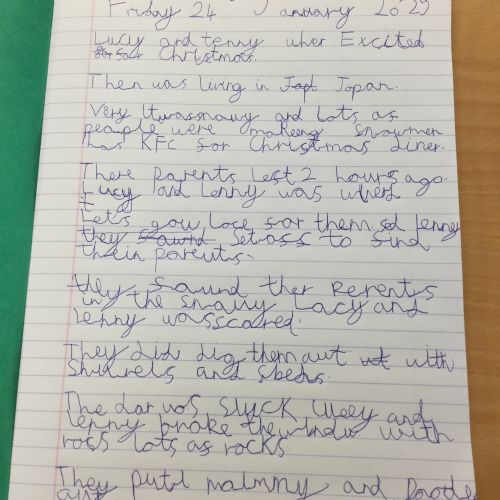 Friday 24th January 2025
Lucy and Lenny wher Excited
for Christmas.
Then was living in Japan.
Very It was snowy and Lots as
people were makeing Snowmen
has KFC for Christmas diner.
There Parents Lest 2 hours ago
Lucy and Lenny was where
Let's gow looc for them sed Lenny
they set oss to find
their parents.
they Saund ther Perents
in the snowy Lacy and
Lenny was scared.
They did dig them out with
Shuvrels and Speds.
The dor wos Stuck Lucy and
Lenny broke the window with
rocs lots as rocks.
They putl malmmy and
out